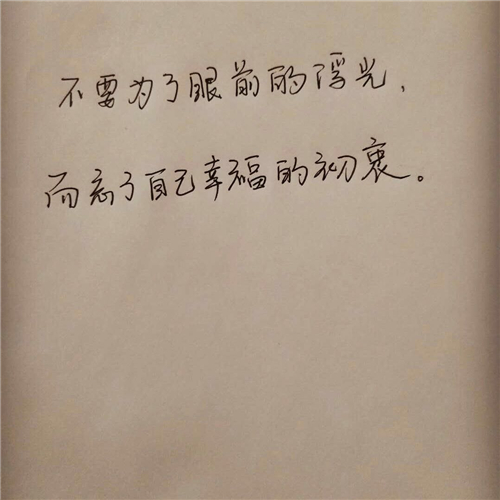 不要为了眼前的浮光，
而忘了自己幸福的初衷。